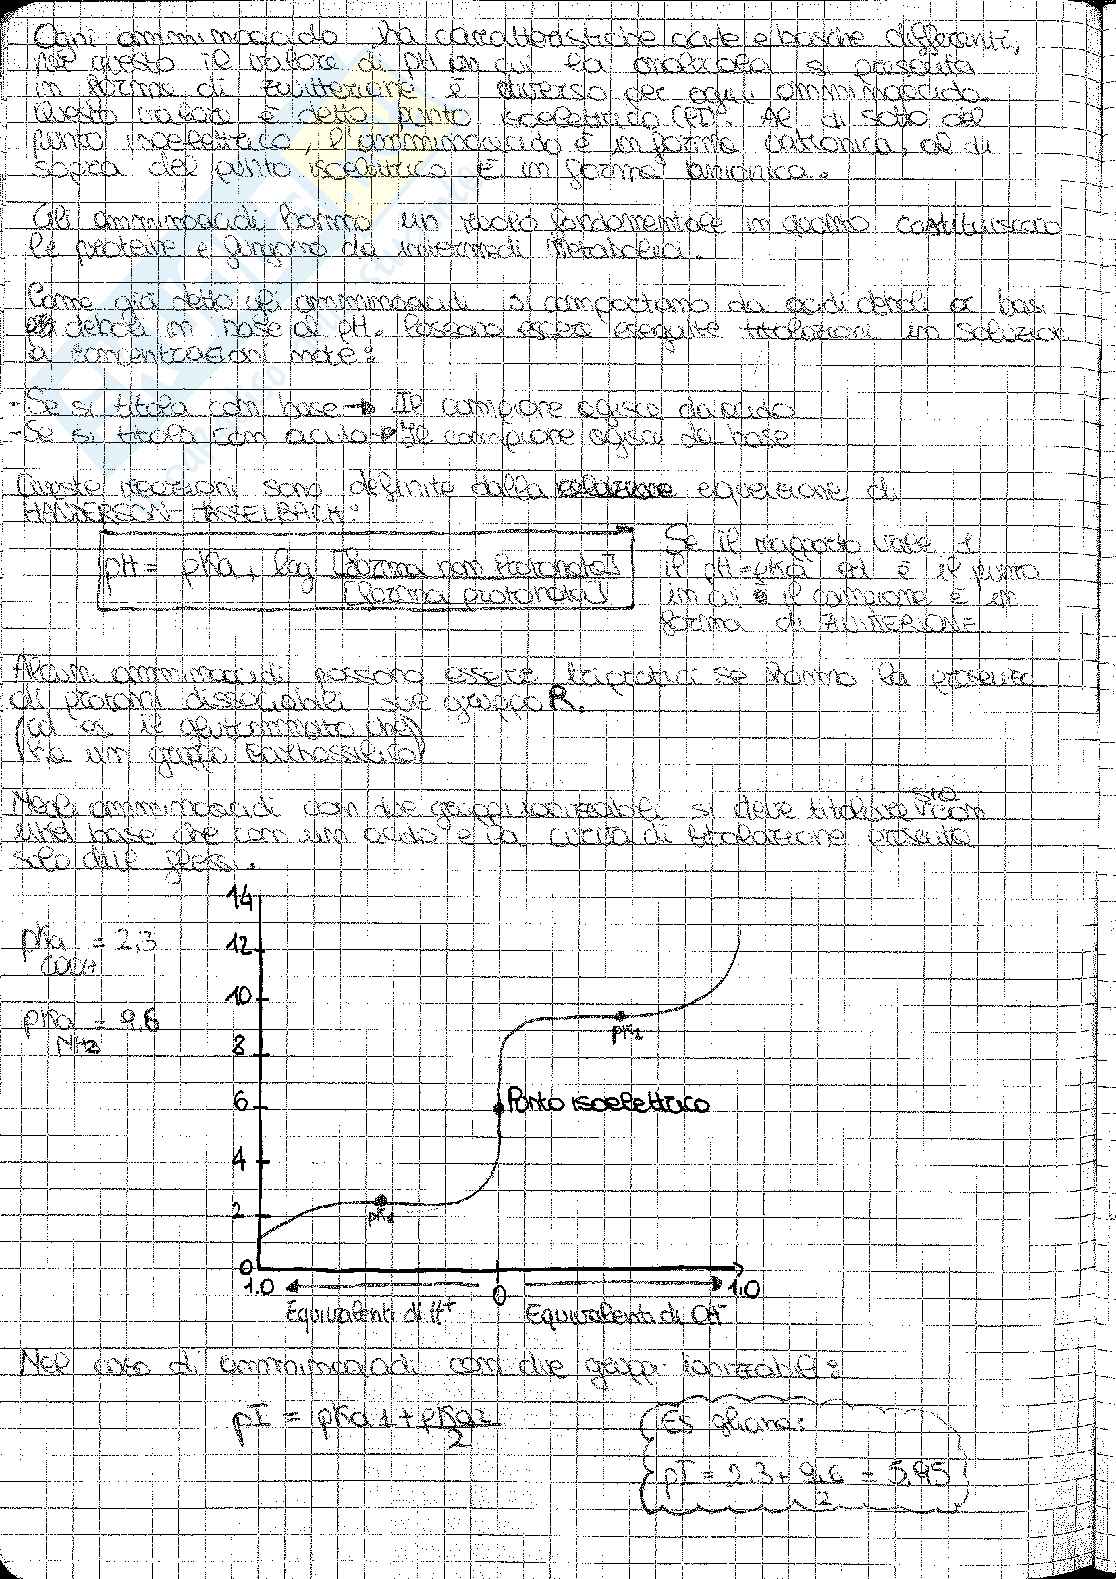 Ogni amminoacido ha caratteristiche acide e basiche differenti,
per questo il valore di pH in cui la molecola si presenta
in forma di zwitterione è diverso per ogni amminoacido.
Questo valore è detto punto isoelettrico (PI). Al di sotto del
punto isoelettrico, l'amminoacido è in forma cationica, al di
sopra del punto isoelettrico è in forma anionica.
Gli amminoacidi hanno un ruolo fondamentale in quanto costituiscono
le proteine e fungono da intermedi metabolici.
Come già detto gli amminoacidi si comportano da acidi deboli o basi
deboli in base al pH. Possono essere eseguite titolazioni in soluzioni
a concentrazioni note:
- Se si titola con base → Il campione agisce da acido
- Se si titola con acido → Il campione agisce da base
Queste reazioni sono definite dalla equazione di
HANDERSON-HASSELBACK:
pH = pKa + log [forma non protonata]
[forma protonata]
Se il rapporto vale 1
il pH=pKa ed è il punto
in cui il campione è in
forma di ZWITTERIONE
Alcuni amminoacidi possono essere triprotici se hanno la presenza
di protoni dissociabili sul gruppo R.
(ad es il glutammato che)
(ha un gruppo carbossilico)
Negli amminoacidi con due gruppi ionizzabili si deve titolare sia con
una base che con un acido e la curva di titolazione presenta
solo due flessi.
14
pKa = 2,3
COOH
12
10
pKa = 9.6
NH2
8
pK2
6
Punto isoelettrico
4
2
pK1
0
1.0
0
1,0
Equivalenti di H+
Equivalenti di OH-
Nel caso di amminoacidi con due gruppi ionizzabili:
pI = pKa1 + pKa2
2
Es glicina:
pI = 2.3 + 9.6 = 5,95
2